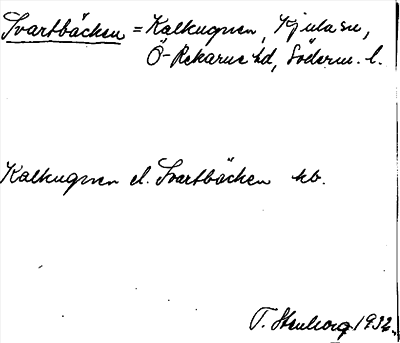 Svartbäcken = Kalkugnen, Kjula sn,
Ö-Rekarne hd, Söderm. l.
Kalkugnen el. Svartbäcken hb.
T. Stenborg 1932.